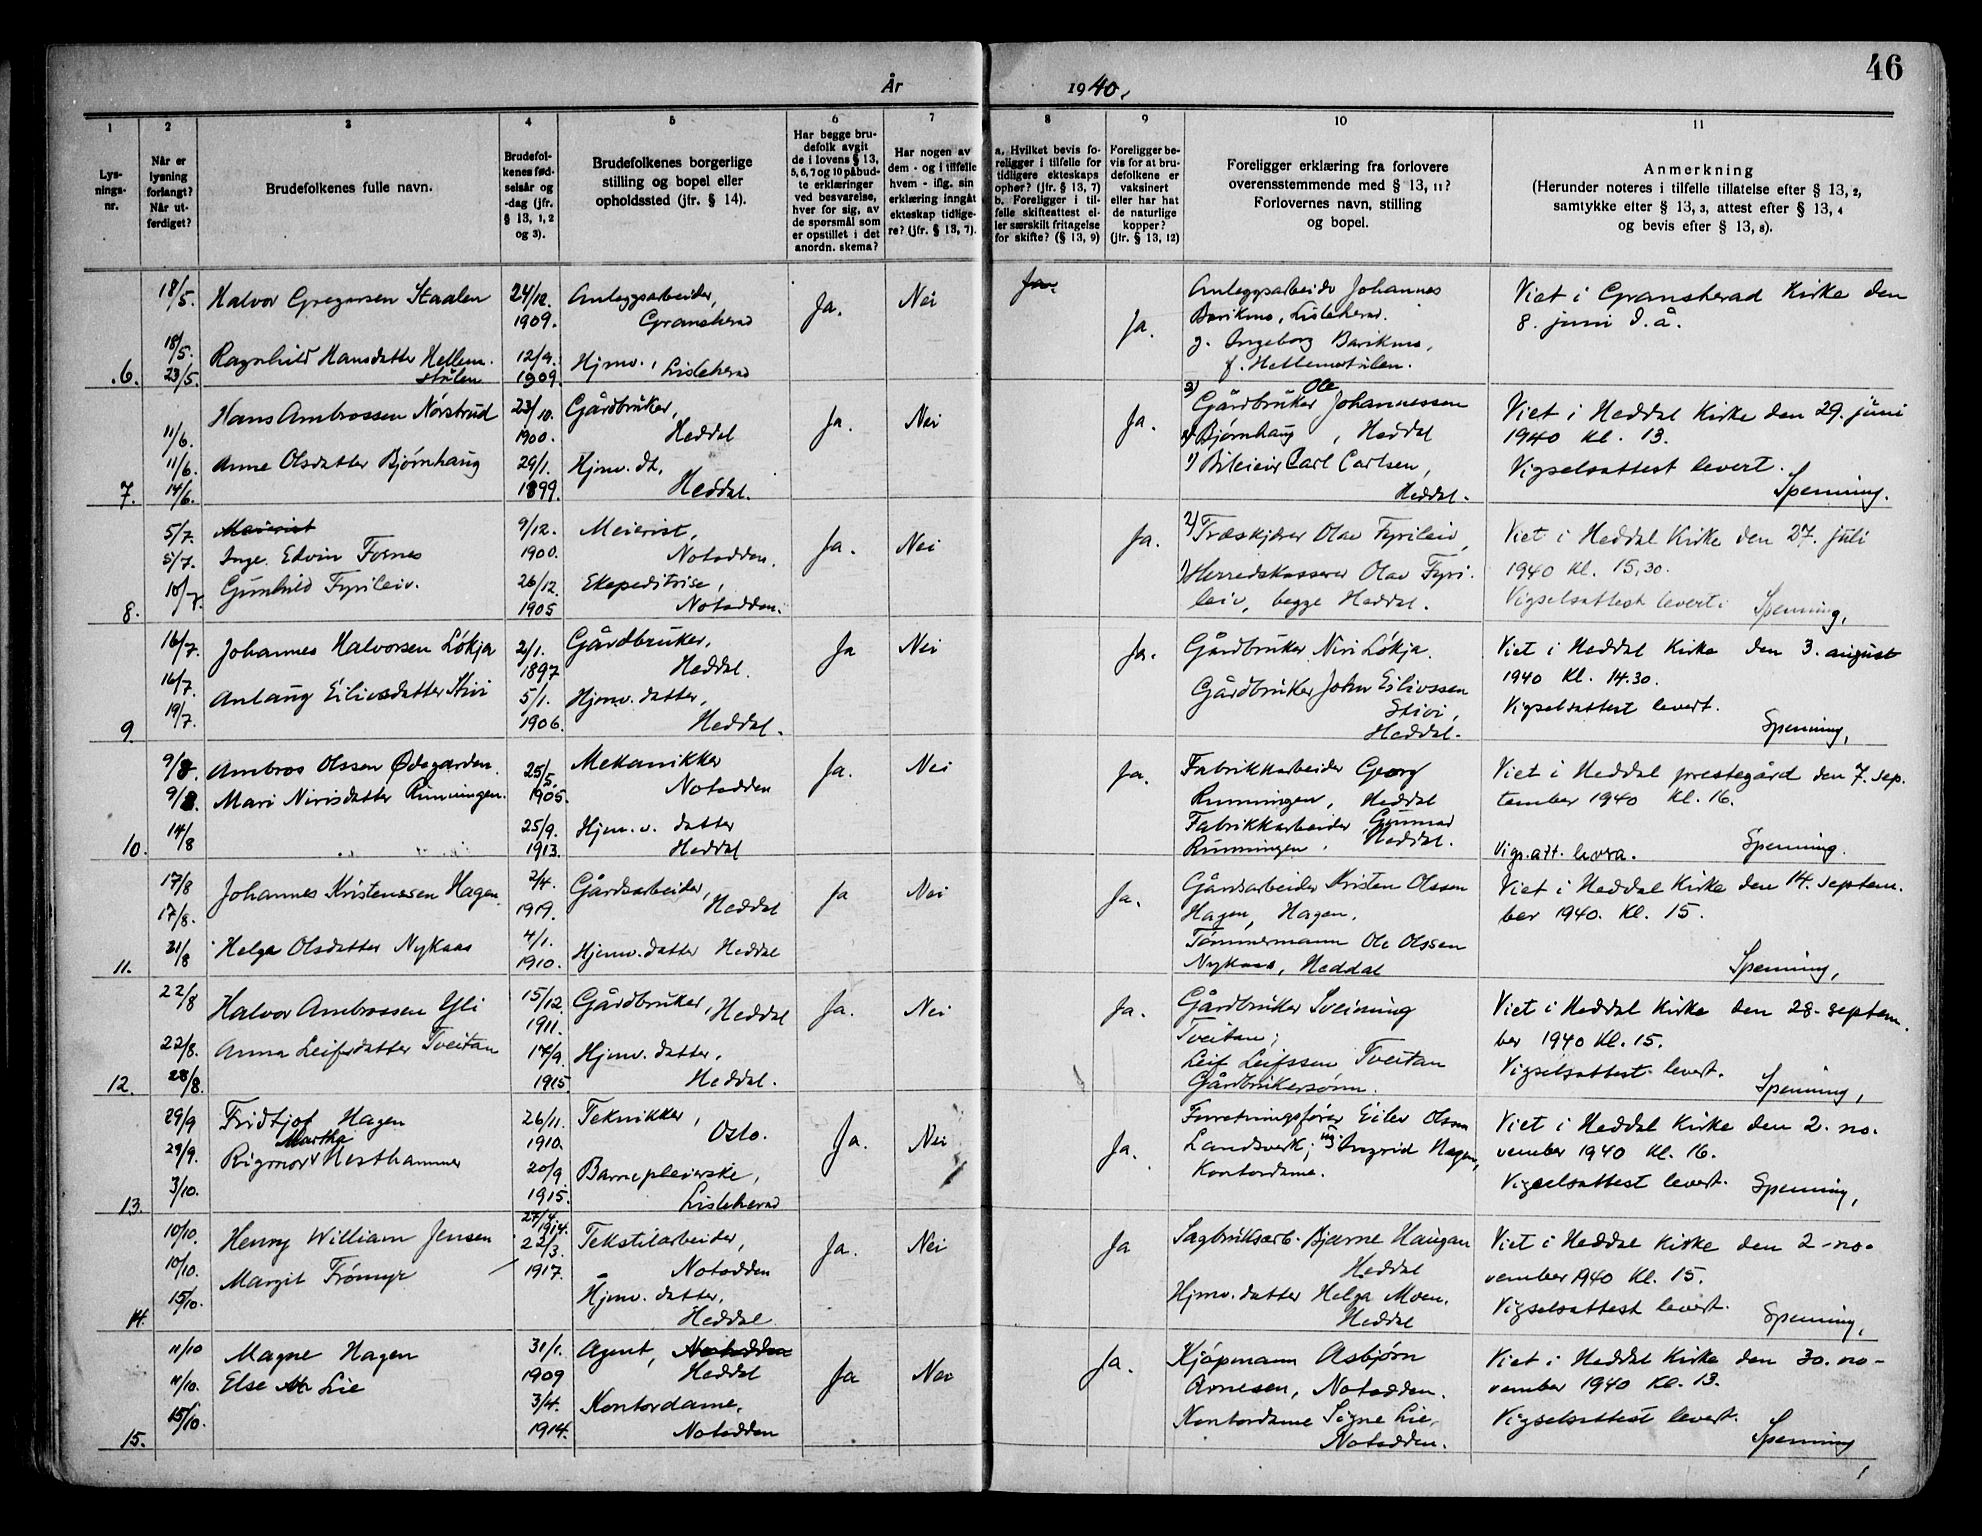 46
År 1940.
1 2 3 4 5 6 7 8 9 10 11
Lysnings-nr.
Når er lysning forlangt? Når utferdiget?
Brudefolkenes fulle navn.
Brudefolkenes fødselsår og -dag (jfr. § 13, 1, 2 og 3).
Brudefolkenes borgerlige stilling og bopel eller opholdssted (jfr. § 14).
Har begge brudefolk avgit de i lovens § 13, 5, 6, 7 og 10 påbudte erklæringer ved besvarelse, hver for sig, av de spørsmål som er opstillet i det anordn. skema?
Har nogen av dem - og i tilfelle hvem - iflg. sin erklæring inngått ekteskap tidligere? (jfr. § 13, 7).
a. Hvilket bevis foreligger i tilfelle for tidligere ekteskaps ophør? (jfr. § 13, 7) b. Foreligger i tilfelle skifteattest eller særskilt fritagelse for skifte? (§ 13, 9)
Foreligger bevis for at brudefolkene er vaksinert eller har hat de naturlige kopper? (jfr. § 13, 12)
Foreligger erklæring fra forlovere overensstemmende med § 13, 11? Forlovernes navn, stilling og bopel.
Anmerkning (Herunder noteres i tilfelle tillatelse efter § 13, 2, samtykke efter § 13, 3, attest efter § 13, 4 og bevis efter § 13, 8).
6.
18/5.
18/5.
23/5.
Halvor Gregarsen Staalen
Ragnhild Hansdatter Hellem-
stulen
24/12.
1909.
12/9.
1909.
Anleggsarbeider,
Gransherad
Hjmv., Lisleherad
Ja.
Nei
Ja.
Ja.
Anleggsarbeider Johannes
Barikmo, Lisleherad.
g. Ingeborg Barikmo,
f. Hellemstulen.
Viet i Gransherad Kirke den
8. juni d.å.
7.
11/6.
11/6.
14/6.
Hans Ambrossen Nørstrud
Anne Olsdatter Bjørnhaug
23/10.
1900.
29/1.
1899.
Gårdbruker,
Heddal
Hjmv. dt,
Heddal.
Ja.
Nei
Ja.
2) Gårdbruker Ole Johannessen
Bjørnhaug, Heddal
1) Bileier Carl Carlsen,
Heddal.
Viet i Heddal Kirke den 29. juni
1940 kl. 13.
Vigselsattest levert.
Spenning.
8.
5/7.
5/7.
10/7.
Meierist
Inge Edvin Fosnes
Gunhild Fyrileiv.
9/12.
1900.
26/12.
1905
Meierist,
Notodden.
Ekspeditrise,
Notodden.
Ja.
Nei
Ja.
2) Træskjærer Olav Fyrileiv,
1) Herredskasserer Olav Fyri-
leiv, begge Heddal.
Viet i Heddal Kirke den 27. juli
1940 kl. 15,30.
Vigselsattest levert.
Spenning,
9.
16/7.
16/7.
19/7.
Johannes Halvorsen Løkja
Anlaug Eilivsdatter Stivi
2/1.
1897
5/1.
1906.
Gårdbruker,
Heddal.
Hjmv. datter,
Heddal.
Ja
Nei
Ja.
Gårdbruker Niri Løkja.
Gårdbruker John Eilivssen
Stivi,
Heddal.
Viet i Heddal Kirke den 3. august
1940 kl. 14.30.
Vigselsattest levert.
Spenning,
10.
9/8.
9/8.
14/8
Ambros Olssen Ødegarden.
Mari Nirisdatter Runningen.
25/5.
1905.
25/9.
1913.
Mekanikker
Notodden
Hjm.v. datter
Heddal
Ja.
Nei
Ja.
Fabrikkarbeider Georg
Runningen, Heddal
Fabrikkarbeider Gunnar
Runningen, Heddal.
Viet i Heddal prestegård den 7. sep-
tember 1940 kl. 16.
Vigs.att. levera.
Spenning.
11.
17/8
17/8.
21/8
Johannes Kristenssen Hagen.
Helga Olsdatter Nykaas
2/4.
1919.
4/1.
1910.
Gårdsarbeider,
Heddal
Hjemv. datter Heddal
Ja
Nei
Ja.
Gårdsarbeider Kristen Olssen
Hagen, Hagen.
Tømmermann Ole Olssen
Nykaas, Heddal
Viet i Heddal Kirke den 14. septem-
ber 1940. Kl. 15.
Spenning,
12.
22/8
22/8.
28/8.
Halvor Ambrossen Yli
Anna Leifsdatter Tveitan
15/12.
1911.
17/9.
1915
Gårdbruker, Heddal
Hjmv. datter,
Heddal.
Ja.
Nei
Ja.
Gårdbruker Sveinung
Tveitan;
Leif Leifssen Tveitan
Gårdbrukersønn.
Viet i Heddal Kirke den 28. septem-
ber 1940 kl. 15.
Vigselsattest levert.
Spenning,
13.
29/9
29/9.
3/10.
Fridtjof Hagen
Rigmor Martha Nesthammer
26/11.
1910.
20/9.
1915.
Teknikker,
Oslo.
Barnepleierske,
Lisleherad
Ja.
Nei
Ja.
Forretningsfører Eilev Olssøn
Landsverk; Ingrid Hagen,
Kontordame.
Viet i Heddal Kirke den 2. no-
vember 1940 kl. 16.
Vigselsattest levert.
Spenning,
14.
10/10.
10/10.
15/10.
Henry William Jensen
Margit Trømyr
27/4
1914.
22/3.
1917.
Tekstilarbeider,
Notodden
Hjmv. datter,
Heddal
Ja.
Nei
Ja
Sagbruksarb. Bjarne Haugan
Heddal
Hjmv. datter Helga Moen.
Heddal
Viet i Heddal Kirke den 2-no-
vember 1940 kl. 15.
Vigselsattest levert.
Spenning,
15.
11/10
11/10.
15/10.
Magne Hagen
Else M Lie
31/1.
1909
3/4.
1914.
Agent, Notodden
Heddal
Kontordame,
Notodden
Ja
Nei
Ja.
Kjøpmann Asbjørn
Arnesen, Notodden.
Kontordame Signe Lie,
Notodden.
Viet i Heddal Kirke den 30. no-
vember 1940 kl. 13.
Vigselsattest levert.
Spenning